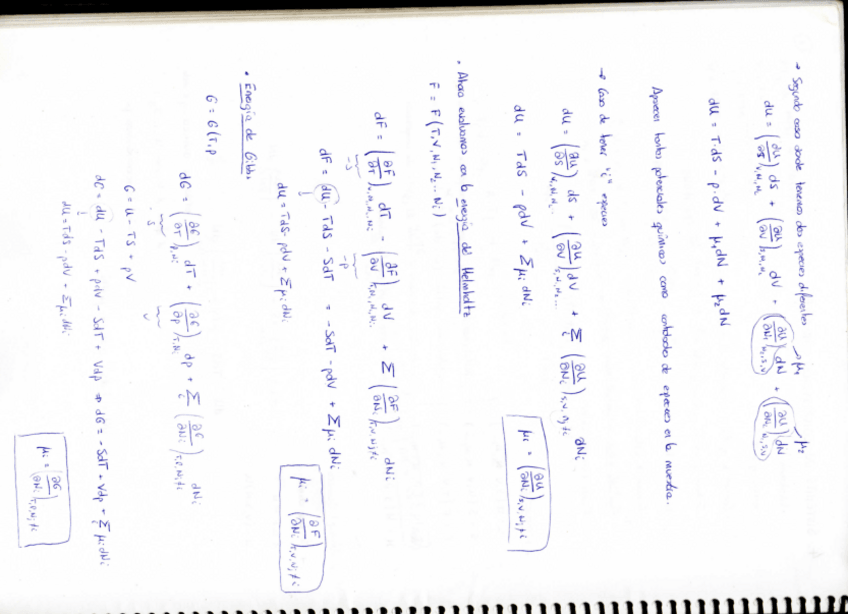 → Segundo caso donde tenemos dos especies diferentes
dU = (∂U/∂S)_{V,N₁,N₂} dS + (∂U/∂V)_{S,N₁,N₂} dV + (∂U/∂N₁)_{N₂,S,V} dN + (∂U/∂N₂)_{N₁,S,V} dN
μ₁ μ₂
dU = T·dS - p·dV + μ₁dN + μ₂dN
Aparecen tantos potenciales químicos como cantidades de especies en la muestra.
→ Caso de tener "i" especies
dU = (∂U/∂S)_{V,N₁,N₂...} dS + (∂U/∂V)_{S,N₁,N₂...} dV + Σ_i (∂U/∂N_i)_{S,V,N_j≠i} dN_i
dU = TdS - pdV + Σ μ_i dN_i
μ_i = (∂U/∂N_i)_{S,V,N_j≠i}
• Ahora evaluamos en la energía de Helmholtz
F = F(T,V,N₁,N₂...N_i)
dF = (∂F/∂T)_{V,N₁,N₂...N_i} dT - (∂F/∂V)_{T,N₁,N₂...N_i} dV + Σ (∂F/∂N_i)_{T,V,N_j≠i} dN_i
-S -p
dF = dU - TdS - SdT = -SdT - pdV + Σ μ_i dN_i
dU = TdS - pdV + Σ μ_i dN_i
μ_i = (∂F/∂N_i)_{T,V,N_j≠i}
• Energía de Gibbs
G = G(T,p
dG = (∂G/∂T)_{p,N_i} dT + (∂G/∂p)_{T,N_i} dp + Σ_i (∂G/∂N_i)_{T,p,N_j≠i} dN_i
-S V
G = U - TS + pV
dG = dU - TdS + pdV - SdT + Vdp ⇒ dG = -SdT + Vdp + Σ_i μ_i dN_i
dU = TdS - pdV + Σ μ_i dN_i
μ_i = (∂G/∂N_i)_{T,p,N_j≠i}